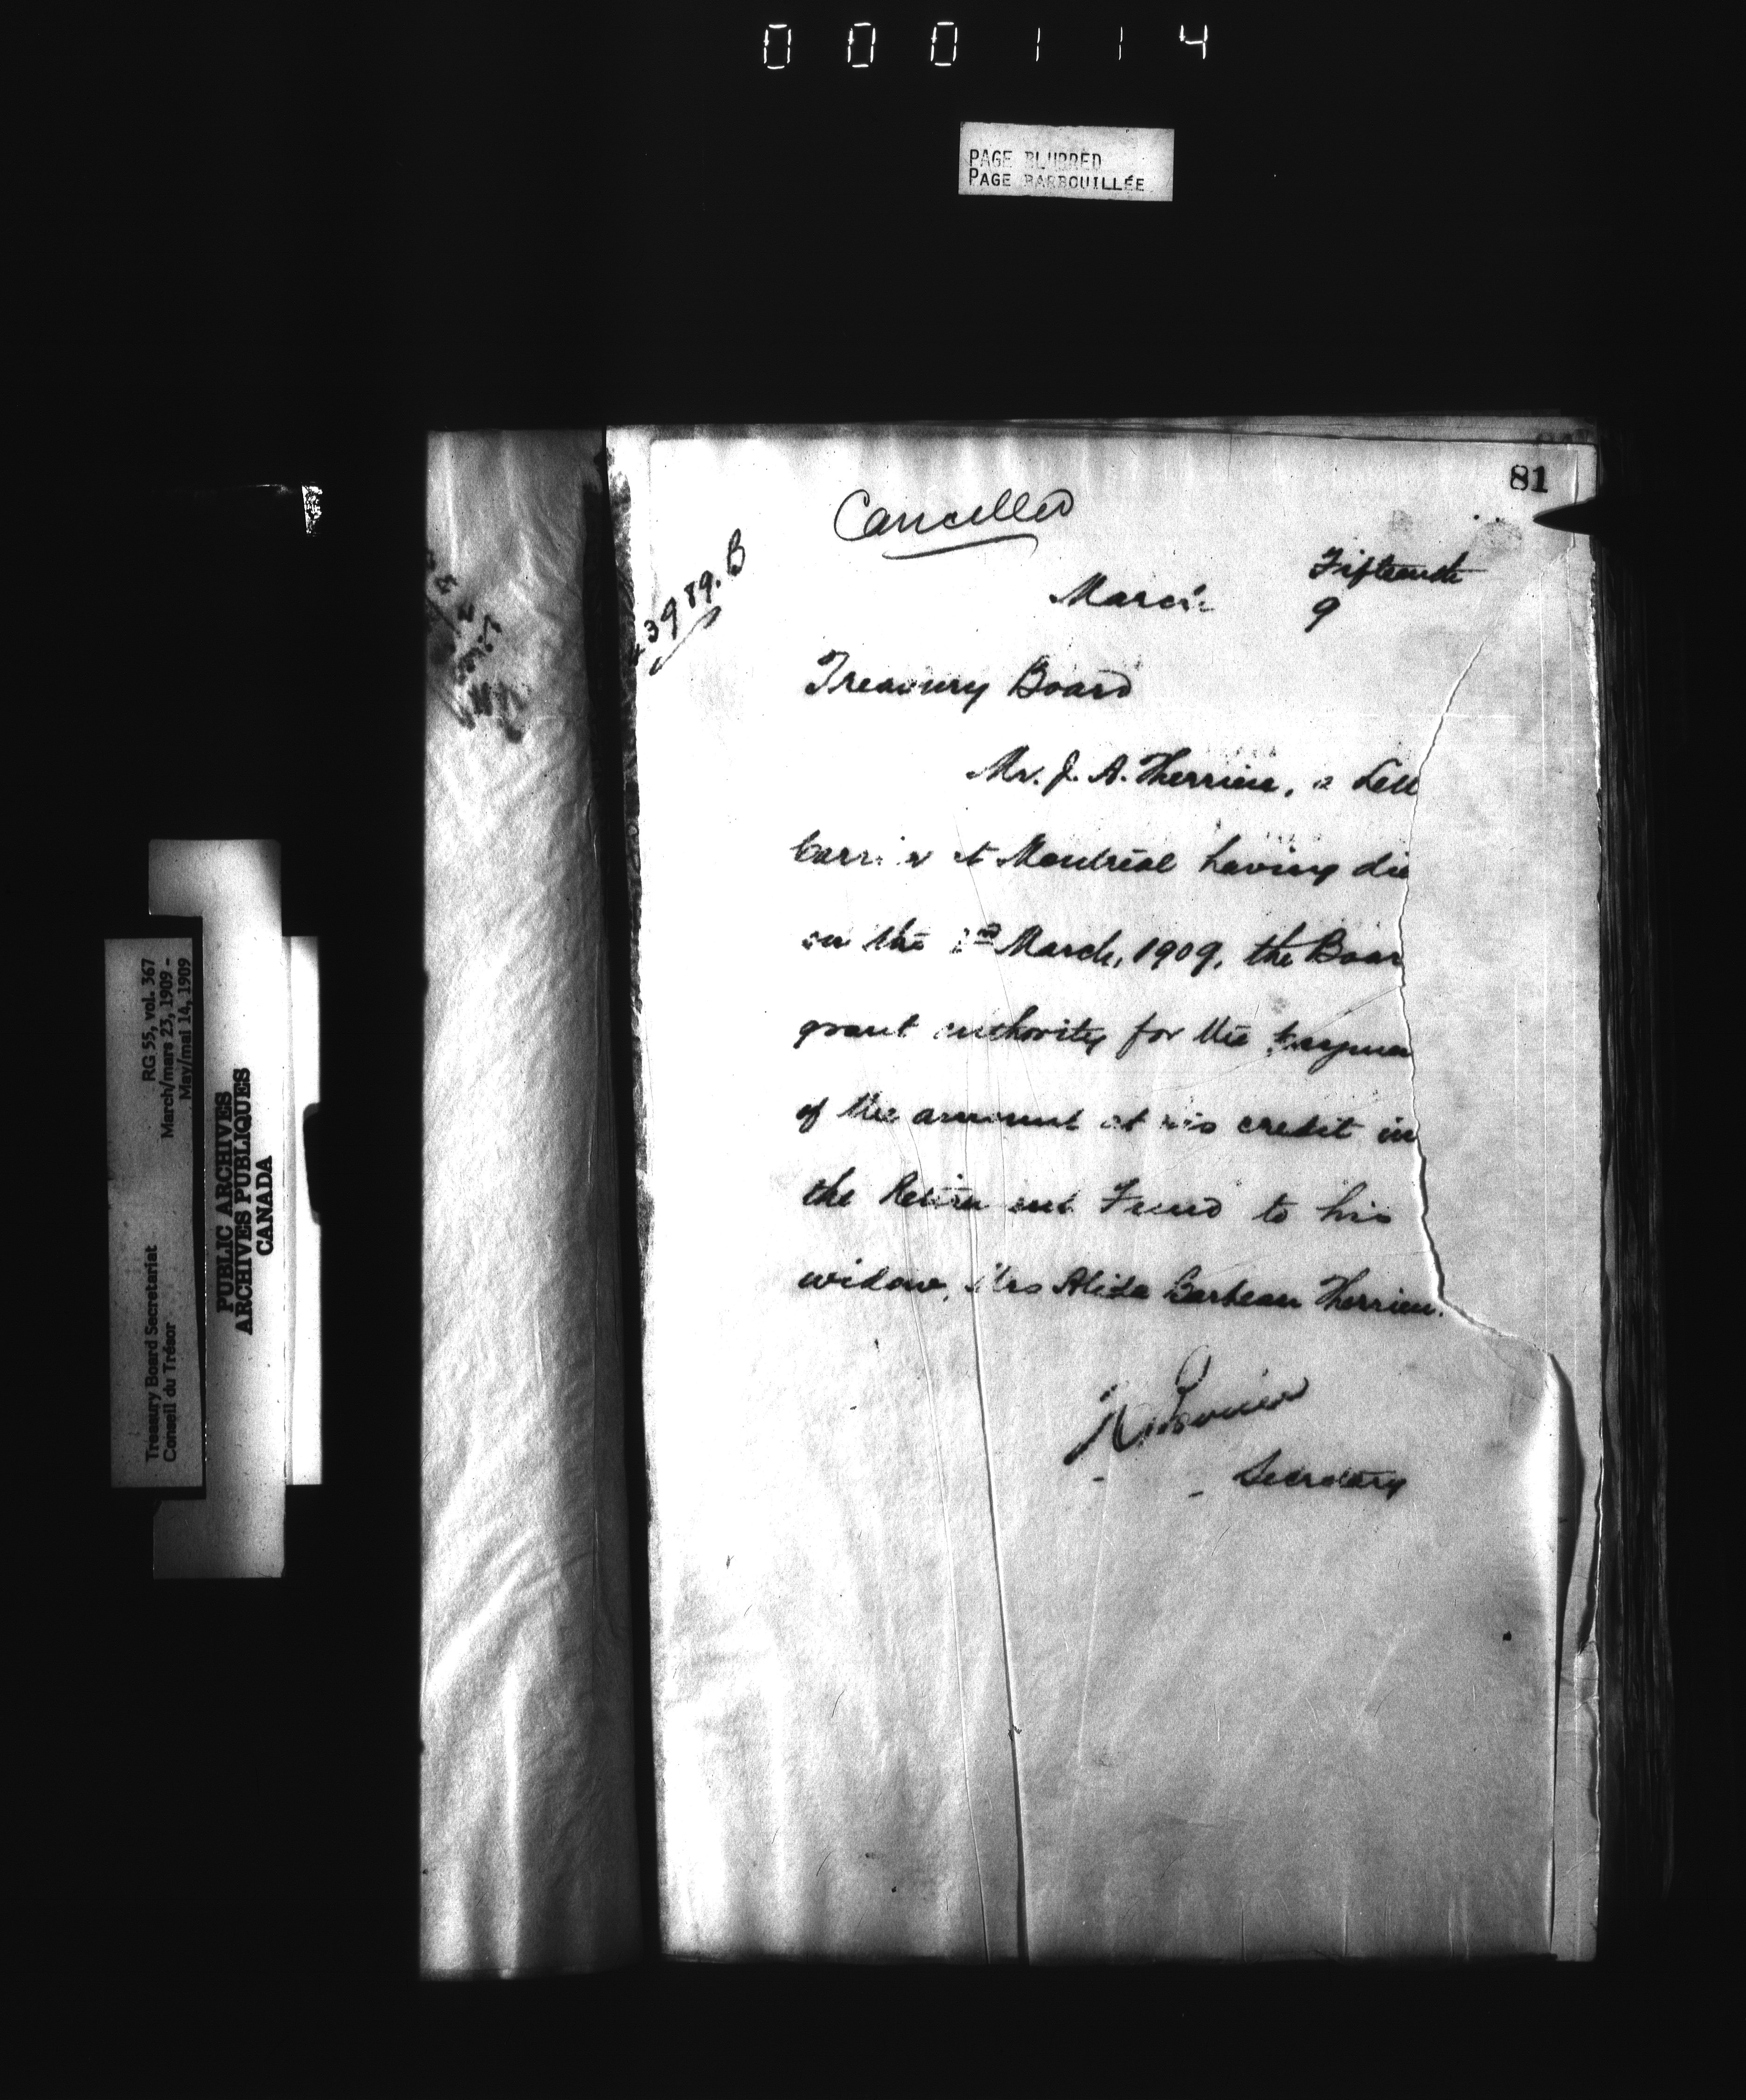 000114
PAGE BLURRED
PAGE BARBOUILLÉE
81
Cancelled
3989.B
Fifteenth
March 9
Treasury Board
Mr. J. A. Therrien, a Lett
Carrier at Montreal having die
on the 2nd March, 1909, the Boar
grant authority for the
of the amount at his credit in
the Retirement Fund to his
widow, Mrs Alida Barbeau Therrien.
Secretary
Treasury Board Secretariat RG 55, vol. 367
Conseil du Trésor March/mars 23, 1909 -
May/mai 14, 1909
PUBLIC ARCHIVES
ARCHIVES PUBLIQUES
CANADA